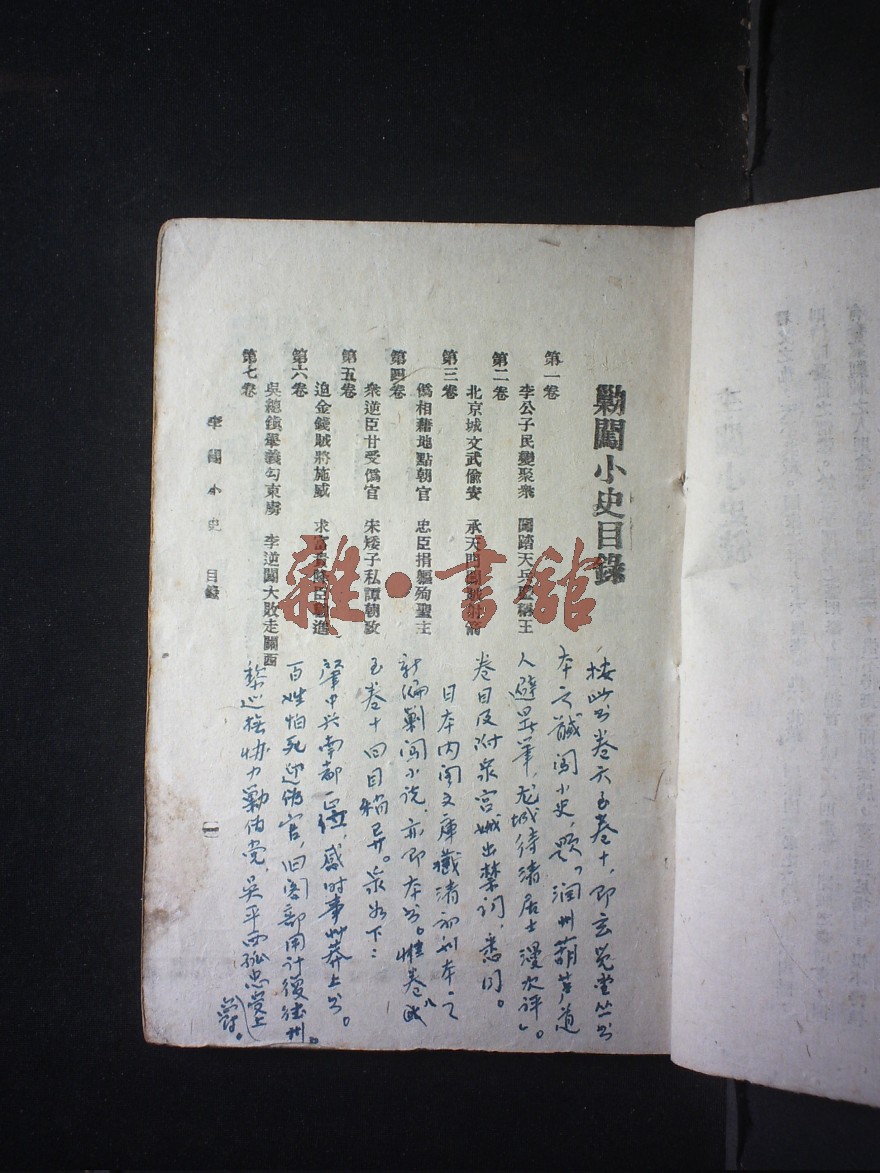 勦闖小史目錄
第一卷
李公子民變聚衆　闖踏天兵敗稱王
第二卷
北京城文武偷安　承天門闖賊射
第三卷
僞相藉地點朝官　忠臣捐軀殉聖主
第四卷
衆逆臣甘受僞官　宋矮子私譚朝政
第五卷
追金錢賊將施威　求富貴降臣勸進
第六卷
吳總鎮舉義勾東虜　李逆闖大敗走關西
第七卷
李闖小史　目錄
一
按此書卷六至卷十，即玄覽堂叢書
本之馘闖小史，題「潤州葫蘆道
人避暑筆，龙城待清居士漫次评」。
卷目及附泉宫娥出禁词，悉同。
日本内阁文庫藏清初刊本之
新编剿闯小说，亦即本书。惟卷八
至卷十回目稍异。录如下：
肇中兴南都正位，感时事草莽上书。
百姓怕死迎伪官，旧阁部用计復德州。
黎巡撫协力剿伪党，吴平西孤忠受上
爵。
雜·書館